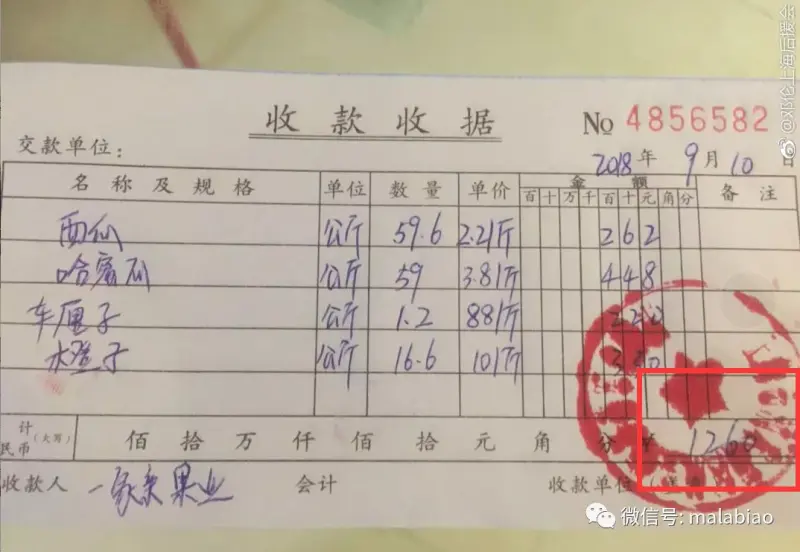 收款收据
No 4856582
交款单位:
2018年9月10日
名称及规格 单位 数量 单价 金额 备注
百十万千百十元角分
西仙 公斤 59.6 2.2/斤 262
哈密瓜 公斤 59 3.8/斤 448
车厘子 公斤 1.2 88/斤 220
水橙子 公斤 16.6 10/斤 330
计
民币(大写) 佰拾万仟佰拾元角分¥ 1260
收款人 一家亲果业 会计 收款单位
微信号: malabiao
@邓伦上海后援会